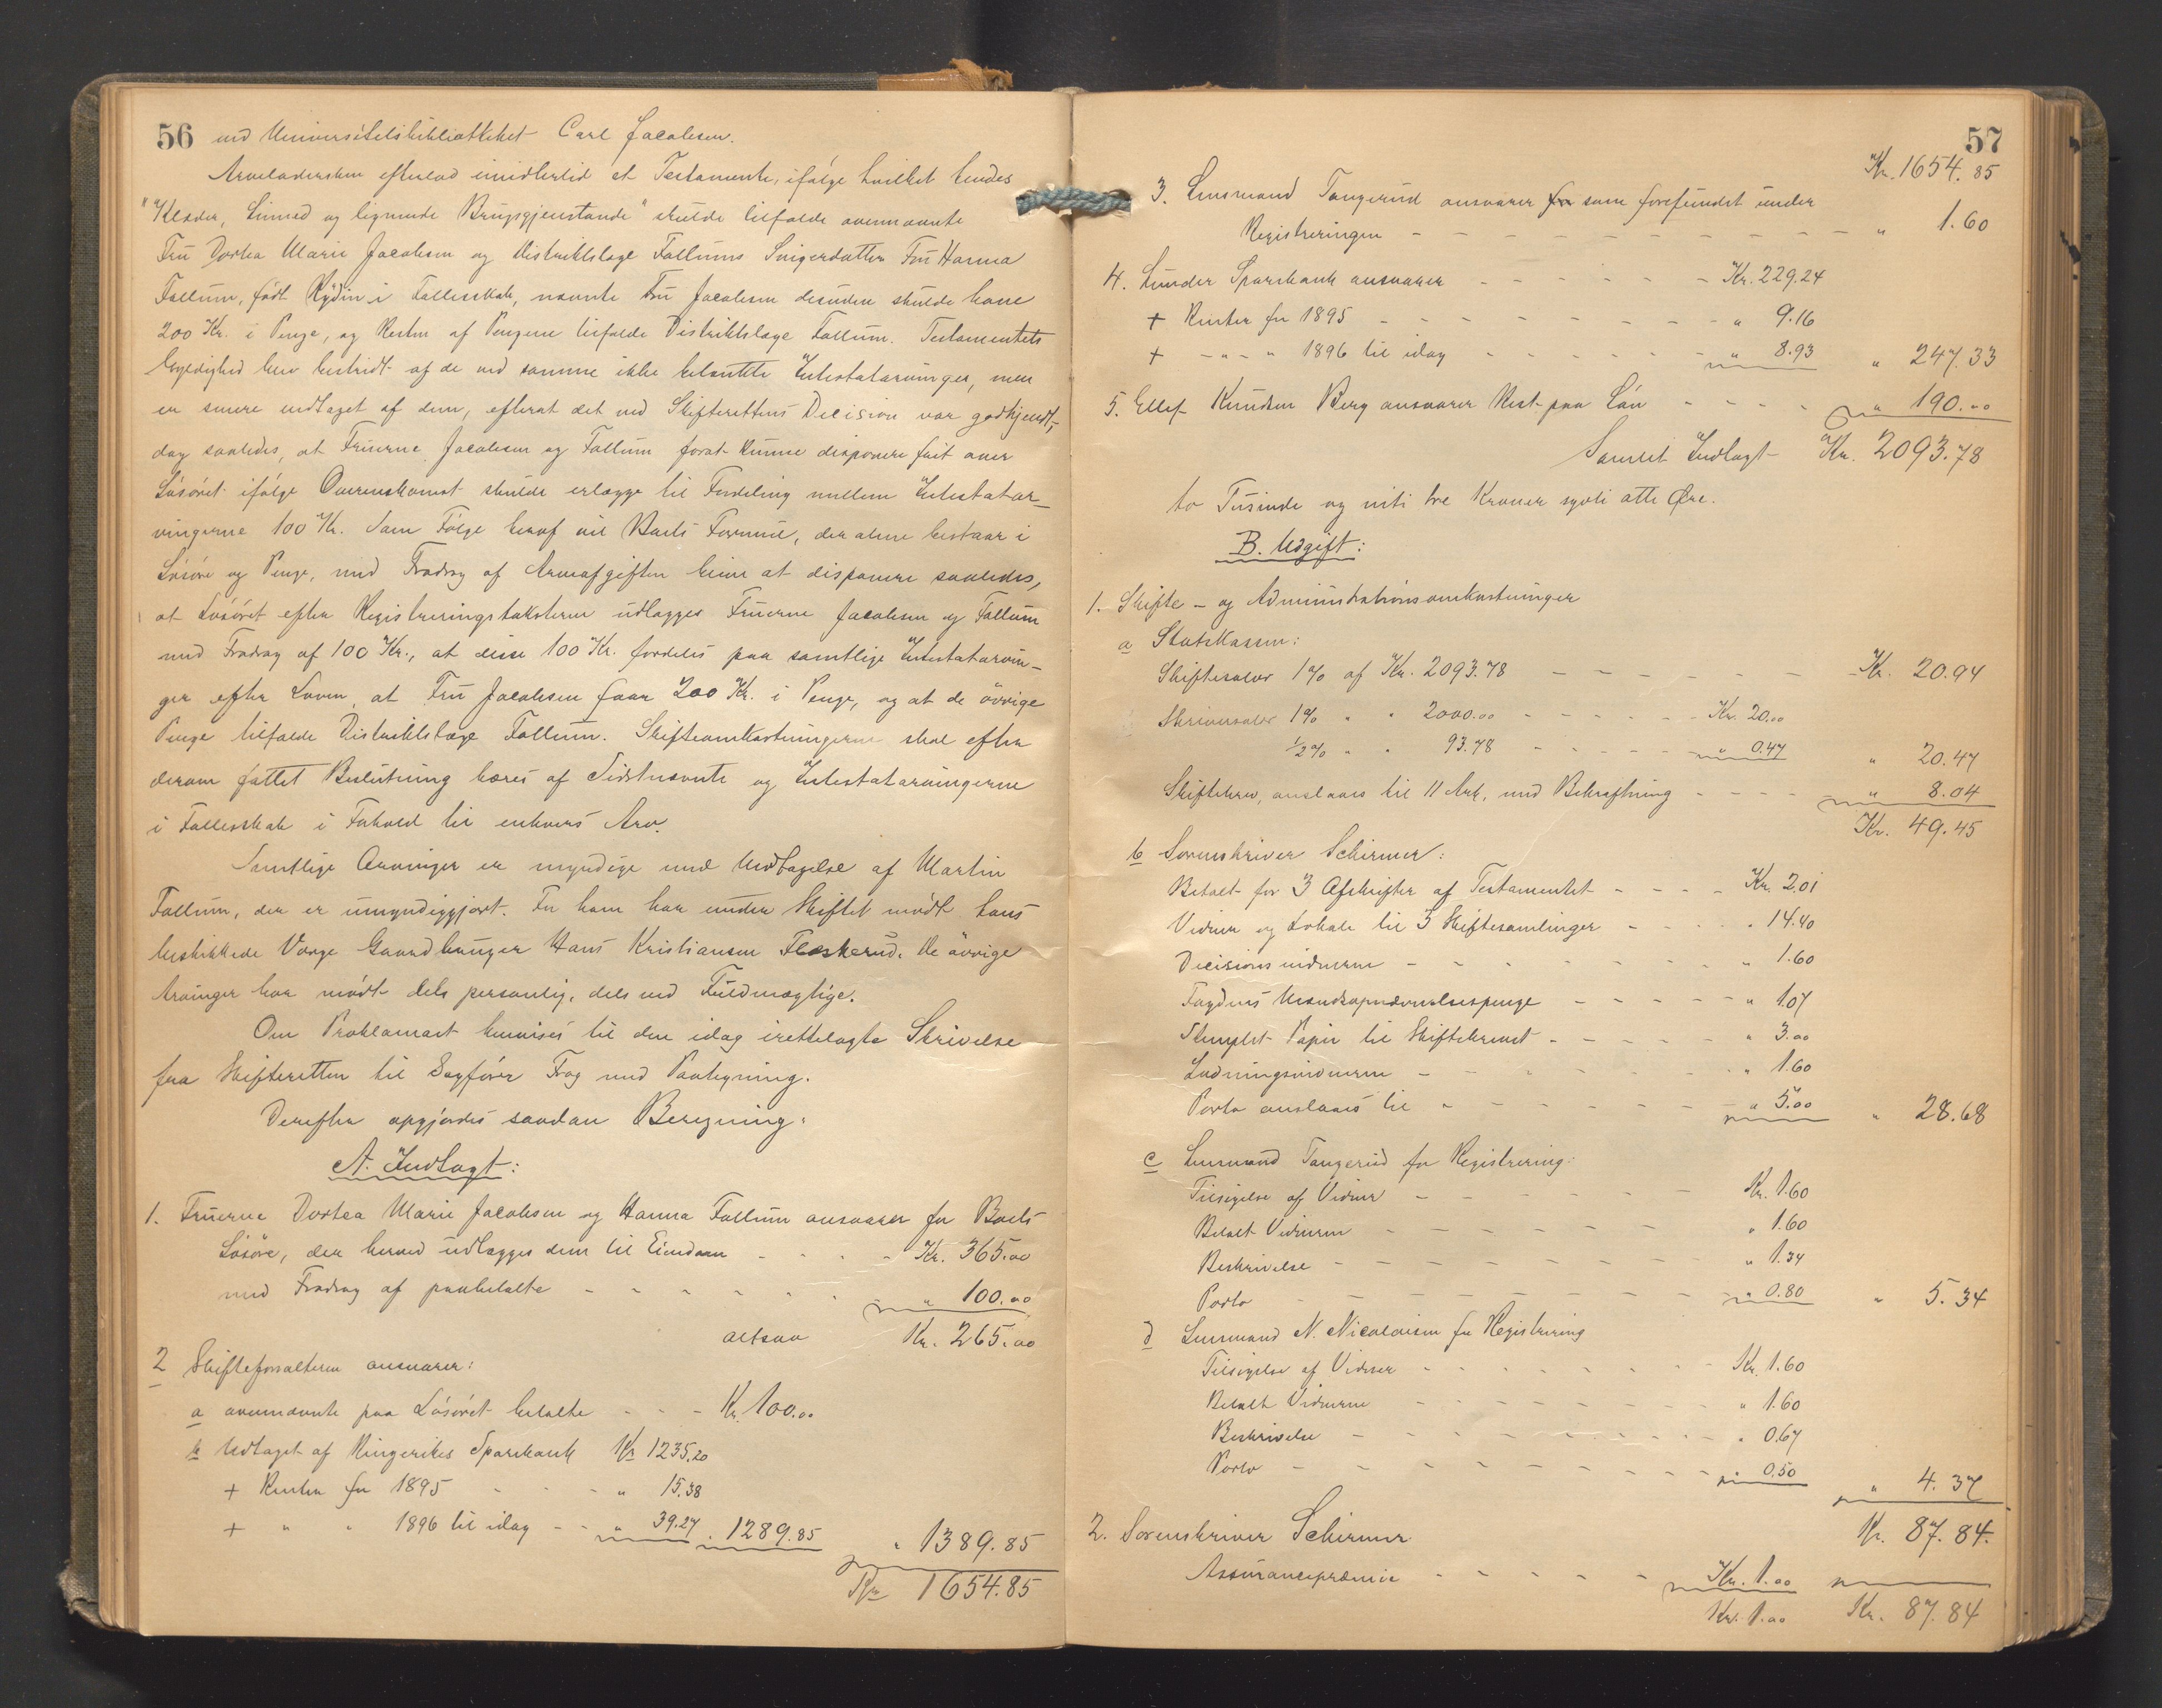 56 ved Universitetsbibliotheket Carl Jacobsen.
Arveladersken efterlod imidlertid et Testamente, ifølge hvilket hendes
"Klæder, Linned og lignende Brugsgjenstande" skulde tilfalde ovennævnte
Fru Dortea Marie Jacobsen og Distriktslæge Follums Svigerdatter Fru Hanna
Follum, født Rydin i Fællesskab, nævnte Fru Jacobsen desuden skulde have
200 Kr. i Penge, og Resten af Pengene tilfalde Distriktslæge Follum. Testamentets
Gyldighed blev bestridt af de ved samme ikke betænkte Intestatarvinger, men
er senere vedtaget af dem, efterat det ved Skifterettens Decision var godkjendt,
dog saaledes, at Fruerne Jacobsen og Follum forat kunne disponere frit over
Løsøret ifølge Overenskomst skulde erlægge til Fordeling mellem Intestatar-
vingerne 100 Kr. Som Følge heraf vil Boets Formue, der alene bestaar i
Løsøre og Penge, med Fradrag af Arveafgiften blive at disponere saaledes,
at Løsøret efter Registreringstaksterne udlægges Fruerne Jacobsen og Follum
med Fradrag af 100 Kr., at disse 100 Kr. fordeles paa samtlige Intestatarvin-
ger efter Loven, at Fru Jacobsen faar 200 Kr. i Penge, og at de øvrige
Penge tilfalde Distriktslæge Follum. Skifteomkostningerne skal efter
derom fattet Beslutning bæres af Sidstnævnte og Intestatarvingerne
i Fællesskab i Forhold til enhvers Arv.
Samtlige Arvinger er myndige med Undtagelse af Martin
Follum, der er umyndiggjort. For ham har under Skiftet mødt hans
beskikkede Værge Gaardbruger Hans Kristiansen Fleskerud. De øvrige
Arvinger har mødt dels personlig, dels ved Fuldmægtige.
Om Proklamaet henvises til den idag irettelagte Skrivelse
fra Skifteretten til Sagfører Frog med Paategning.
Derefter opgjordes saadan Beregning:
A. Indtægt:
1. Fruerne Dortea Marie Jacobsen og Hanna Follum ansvarer for Boets
Løsøre, der herved udlægges dem til Eiendom - - - - Kr. 365.00
med Fradrag af paabetalte - - - - - - " 100.00
altsaa Kr. 265.00
2 Skifteforvalteren ansvarer:
a ovennævnte paa Løsøret betalte - - - Kr. 100.00
b Udtaget af Ringerikes Sparebank Kr 1235.20
+ Renter for 1895 - - - " 15.38
+ " " 1896 til idag - - " 39.27 . 1289.85 " 1389.85
Kr 1654.85
57
Kr. 1654.85
3. Lensmand Tangerud ansvarer for som forefundet under
Registreringen - - - - - - - - - - " 1.60
4. Lunder Sparebank ansvarer - - - - - Kr. 229.24
+ Renter for 1895 - - - - - - - - " 9.16
+ - " - " 1896 til idag - - - - - - " 8.93 " 247.33
5. Ellef Knudsen Berg ansvarer Rest paa Lån - - - - " 190.00
Samlet Indtægt Kr. 2093.78
to Tusinde og niti tre Kroner sytti otte Øre.
B. Udgift:
1. Skifte- og Administrationsomkostninger
a Statskassen:
Skiftesalær 1% af Kr. 2093.78 - - - - - - - Kr. 20.94
Skriversalær 1% " " 2000.00 - - - - - - Kr. 20.00
½% " " 93.78 - - - - - " 0.47 " 20.47
Skiftebrev, anslaaes til 11 Ark, med Bekræftning - - - - " 8.04
Kr. 49.45
b Sorenskriver Schirmer:
Betalt for 3 Afskrifter af Testamentet - - - - Kr. 2.01
Vidner og Lokale til 3 Skiftesamlinger - - - - " 14.40
Decisionsvidnerne - - - - - - - " 1.60
Fogdens Mændsopnævnelsespenge - - - - - " 1.07
Stemplet Papir til Skiftebrevet - - - - - " 3.00
Lodningsvidnerne - - - - - - " 1.60
Porto anslaaes til - - - - - - - " 5.00 " 28.68
c Lensmand Tangerud for Registrering:
Tilsigelse af Vidner - - - - - - Kr. 1.60
Betalt Vidnerne - - - - - - " 1.60
Beskrivelse - - - - - - - - " 1.34
Porto - - - - - - - - " 0.80 " 5.34
d Lensmand N. Nicolaisen for Registrering
Tilsigelse af Vidner - - - - - - - Kr. 1.60
Betalt Vidnerne - - - - - - - " 1.60
Beskrivelse - - - - - - - - " 0.67
Porto - - - - - - - - - " 0.50 " 4.37
2. Sorenskriver Schirmer Kr. 87.84.
Assurancepræmie - - - - - Kr. 1.00
Kr. 1.00 Kr. 87.84